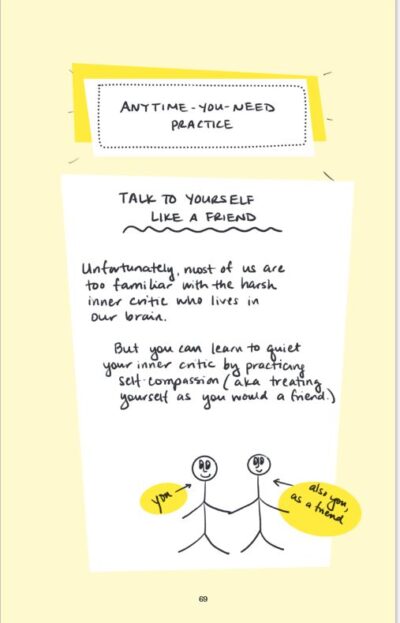 ANYTIME-YOU-NEED
PRACTICE
TALK TO YOURSELF
LIKE A FRIEND
Unfortunately, most of us are
too familiar with the harsh
inner critic who lives in
our brain.
But you can learn to quiet
your inner critic by practicing
self-compassion (aka treating
yourself as you would a friend.)
you
also you,
as a friend
69